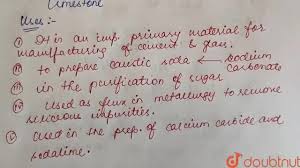 Limestone
Uses :-
(i) It is an imp. primary material for
manufacturing of cement & glass.
(ii) to prepare caustic soda ← sodium
carbonate
(iii) in the purification of sugar
(iv) used as flux in metallurgy to remove
silicious impurities.
(v) used in the prep. of calcium carbide and
sodalime.
doubtnut